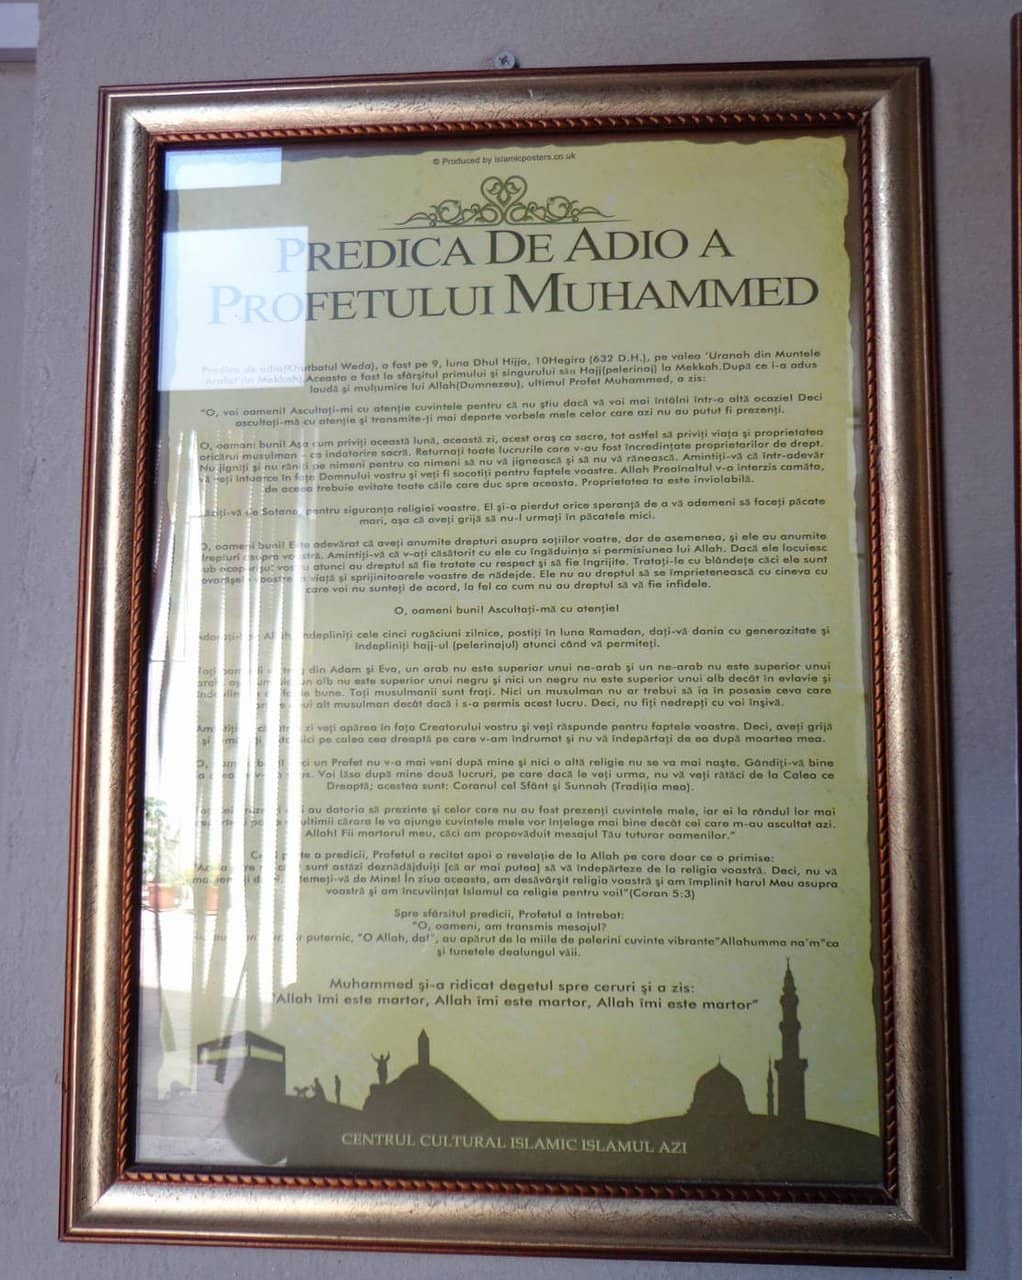 © Produced by islamicposters.co.uk
PREDICA DE ADIO A
PROFETULUI MUHAMMED
Predica de adio(Khutbatul Weda), a fost pe 9, luna Dhul Hijja, 10Hegira (632 D.H.), pe valea 'Uranah din Muntele
Arafat(în Mekkah).Aceasta a fost la sfârșitul primului și singurului său Hajj(pelerinaj) la Mekkah.După ce i-a adus
laudă și mulțumire lui Allah(Dumnezeu), ultimul Profet Muhammed, a zis:
"O, voi oameni! Ascultați-mi cu atenție cuvintele pentru că nu știu dacă vă voi mai întâlni într-o altă ocazie! Deci
ascultați-mă cu atenție și transmite-ți mai departe vorbele mele celor care azi nu au putut fi prezenți.
O, oameni buni! Așa cum priviți această lună, această zi, acest oraș ca sacre, tot astfel să priviți viața și proprietatea
oricărui musulman – ca îndatorire sacră. Returnați toate lucrurile care v-au fost încredințate proprietarilor de drept.
Nu jigniți și nu răniți pe nimeni pentru ca nimeni să nu vă jignească și să nu vă rănească. Amintiți-vă că într-adevăr
vă veți întoarce în fața Domnului vostru și veți fi socotiți pentru faptele voastre. Allah Preaînaltul v-a interzis camăta,
de aceea trebuie evitate toate căile care duc spre aceasta. Proprietatea ta este inviolabilă.
de Satana, pentru siguranța religiei voastre. El și-a pierdut orice speranță de a vă ademeni să faceți păcate
mari, așa că aveți grijă să nu-l urmați în păcatele mici.
O, oameni buni! Este adevărat că aveți anumite drepturi asupra soțiilor voatre, dar de asemenea, și ele au anumite
drepturi asupra voastră. Amintiți-vă că v-ați căsătorit cu ele cu îngăduința si permisiunea lui Allah. Dacă ele locuiesc
sub acoperișul vostru atunci au dreptul să fie tratate cu respect și să fie îngrijite. Tratați-le cu blândețe căci ele sunt
tovarășele voastre viață și sprijinitoarele voastre de nădejde. Ele nu au dreptul să se împrietenească cu cineva cu
care voi nu sunteți de acord, la fel ca cum nu au dreptul să vă fie infidele.
O, oameni buni! Ascultați-mă cu atenție!
Allah, îndepliniți cele cinci rugăciuni zilnice, postiți în luna Ramadan, dați-vă dania cu generozitate și
îndepliniți hajj-ul (pelerinajul) atunci când vă permiteți.
Toți oamenii se trag din Adam și Eva, un arab nu este superior unui ne-arab și un ne-arab nu este superior unui
arab; un alb nu este superior unui negru și nici un negru nu este superior unui alb decât în evlavie și
fapte bune. Toți musulmanii sunt frați. Nici un musulman nu ar trebui să ia în posesie ceva care
unui alt musulman decât dacă i s-a permis acest lucru. Deci, nu fiți nedrepți cu voi înșivă.
zi veți apărea în fața Creatorului vostru și veți răspunde pentru faptele voastre. Deci, aveți grijă
și pe calea cea dreaptă pe care v-am îndrumat și nu vă îndepărtați de ea după moartea mea.
O, oameni buni! Nici un Profet nu v-a mai veni după mine și nici o altă religie nu se va mai naște. Gândiți-vă bine
Voi lăsa după mine două lucruri, pe care dacă le veți urma, nu vă veți rătăci de la Calea ce
Dreaptă; acestea sunt: Coranul cel Sfânt și Sunnah (Tradiția mea).
au datoria să prezinte și celor care nu au fost prezenți cuvintele mele, iar ei la rândul lor mai
ultimii cărora le va ajunge cuvintele mele vor înțelege mai bine decât cei care m-au ascultat azi.
Allah! Fii martorul meu, căci am propovăduit mesajul Tău tuturor oamenilor."
parte a predicii, Profetul a recitat apoi o revelație de la Allah pe care doar ce o primise:
sunt astăzi deznădăjduiți [că ar mai putea] să vă îndepărteze de la religia voastră. Deci, nu vă
temeți-vă de Mine! În ziua aceasta, am desăvârșit religia voastră și am împlinit harul Meu asupra
voastră și am încuviințat Islamul ca religie pentru voi!"(Coran 5:3)
Spre sfârsitul predicii, Profetul a întrebat:
"O, oameni, am transmis mesajul?
puternic, "O Allah, da!", au apărut de la miile de pelerini cuvinte vibrante"Allahumma na'm"ca
și tunetele dealungul văii.
Muhammed și-a ridicat degetul spre ceruri și a zis:
"Allah îmi este martor, Allah îmi este martor, Allah îmi este martor"
CENTRUL CULTURAL ISLAMIC ISLAMUL AZI